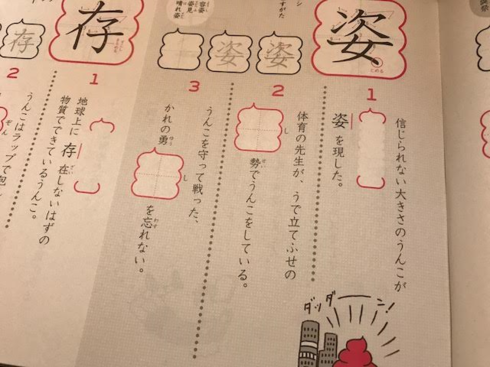 姿
とめる
すがた
容姿
姿見
晴れ姿
姿
姿
1
信じられない大きさのうんこが
姿を現した。
2
体育の先生が、うで立てふせの
し
勢でうんこをしている。
ぜい
3
うんこを守って戦った、
かれの勇
ゆう
し
を忘れない。
わす
ダッダーン!
存
存
1
地球上に存在しないはずの
ざい
物質でできているうんこ。
2
ぞん
うんこはラップで包